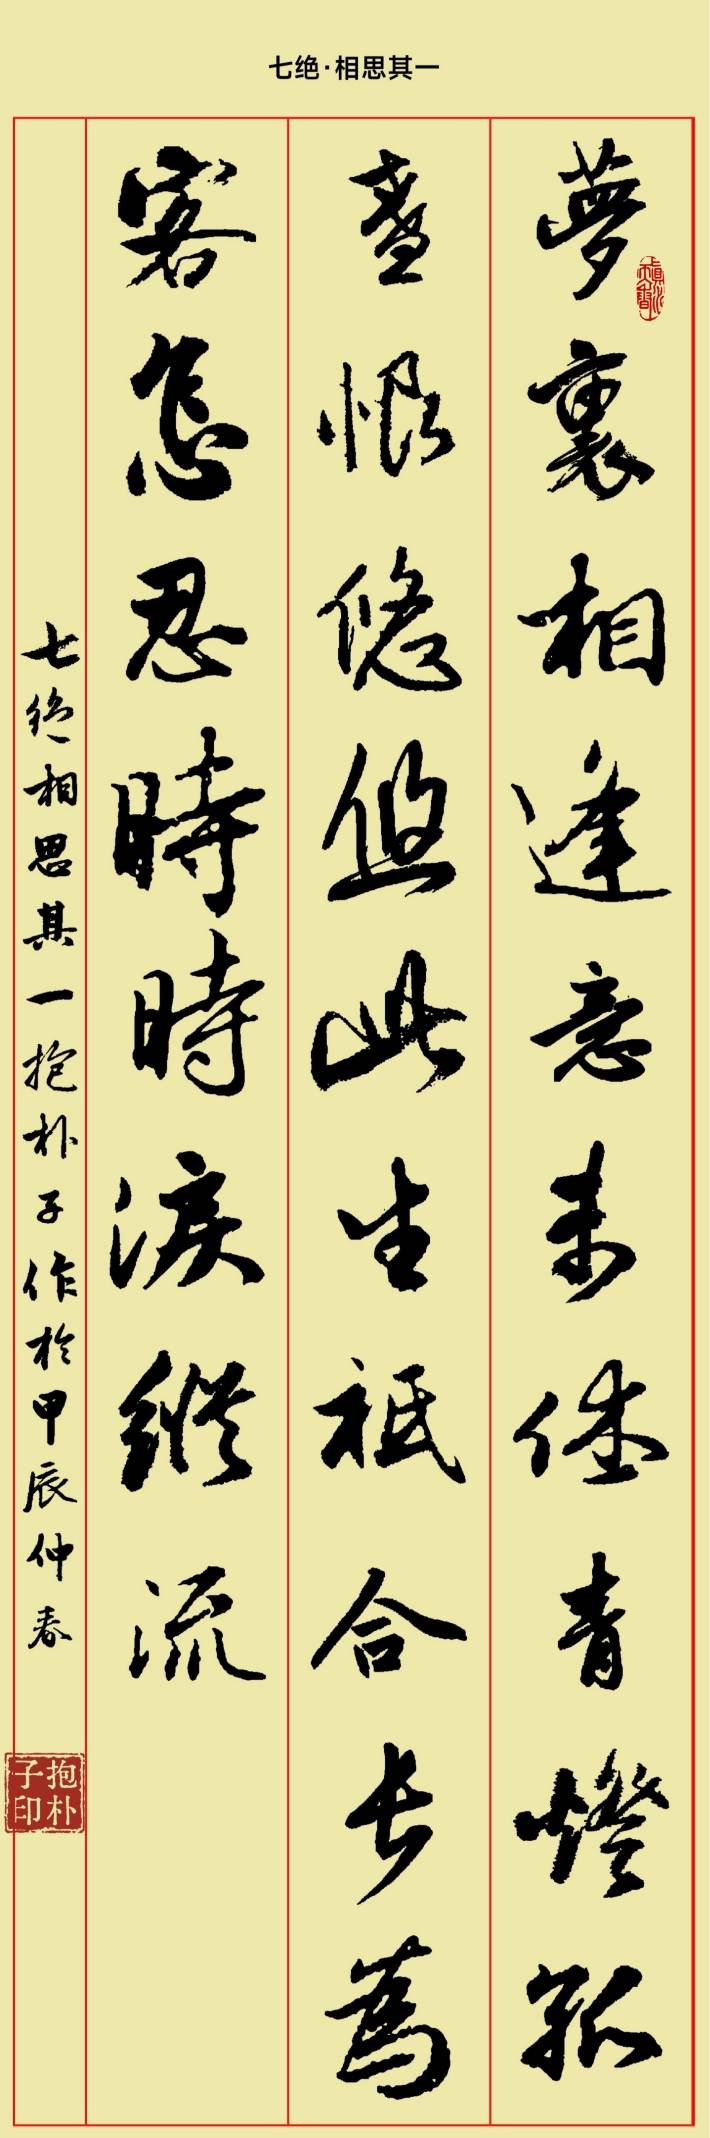 七绝·相思其一
夢裏相逢意未休青燈孤
盞恨悠悠此生祗合長為
客怎忍時時淚縱流
七绝相思其一抱朴子作於甲辰仲春
抱朴子印